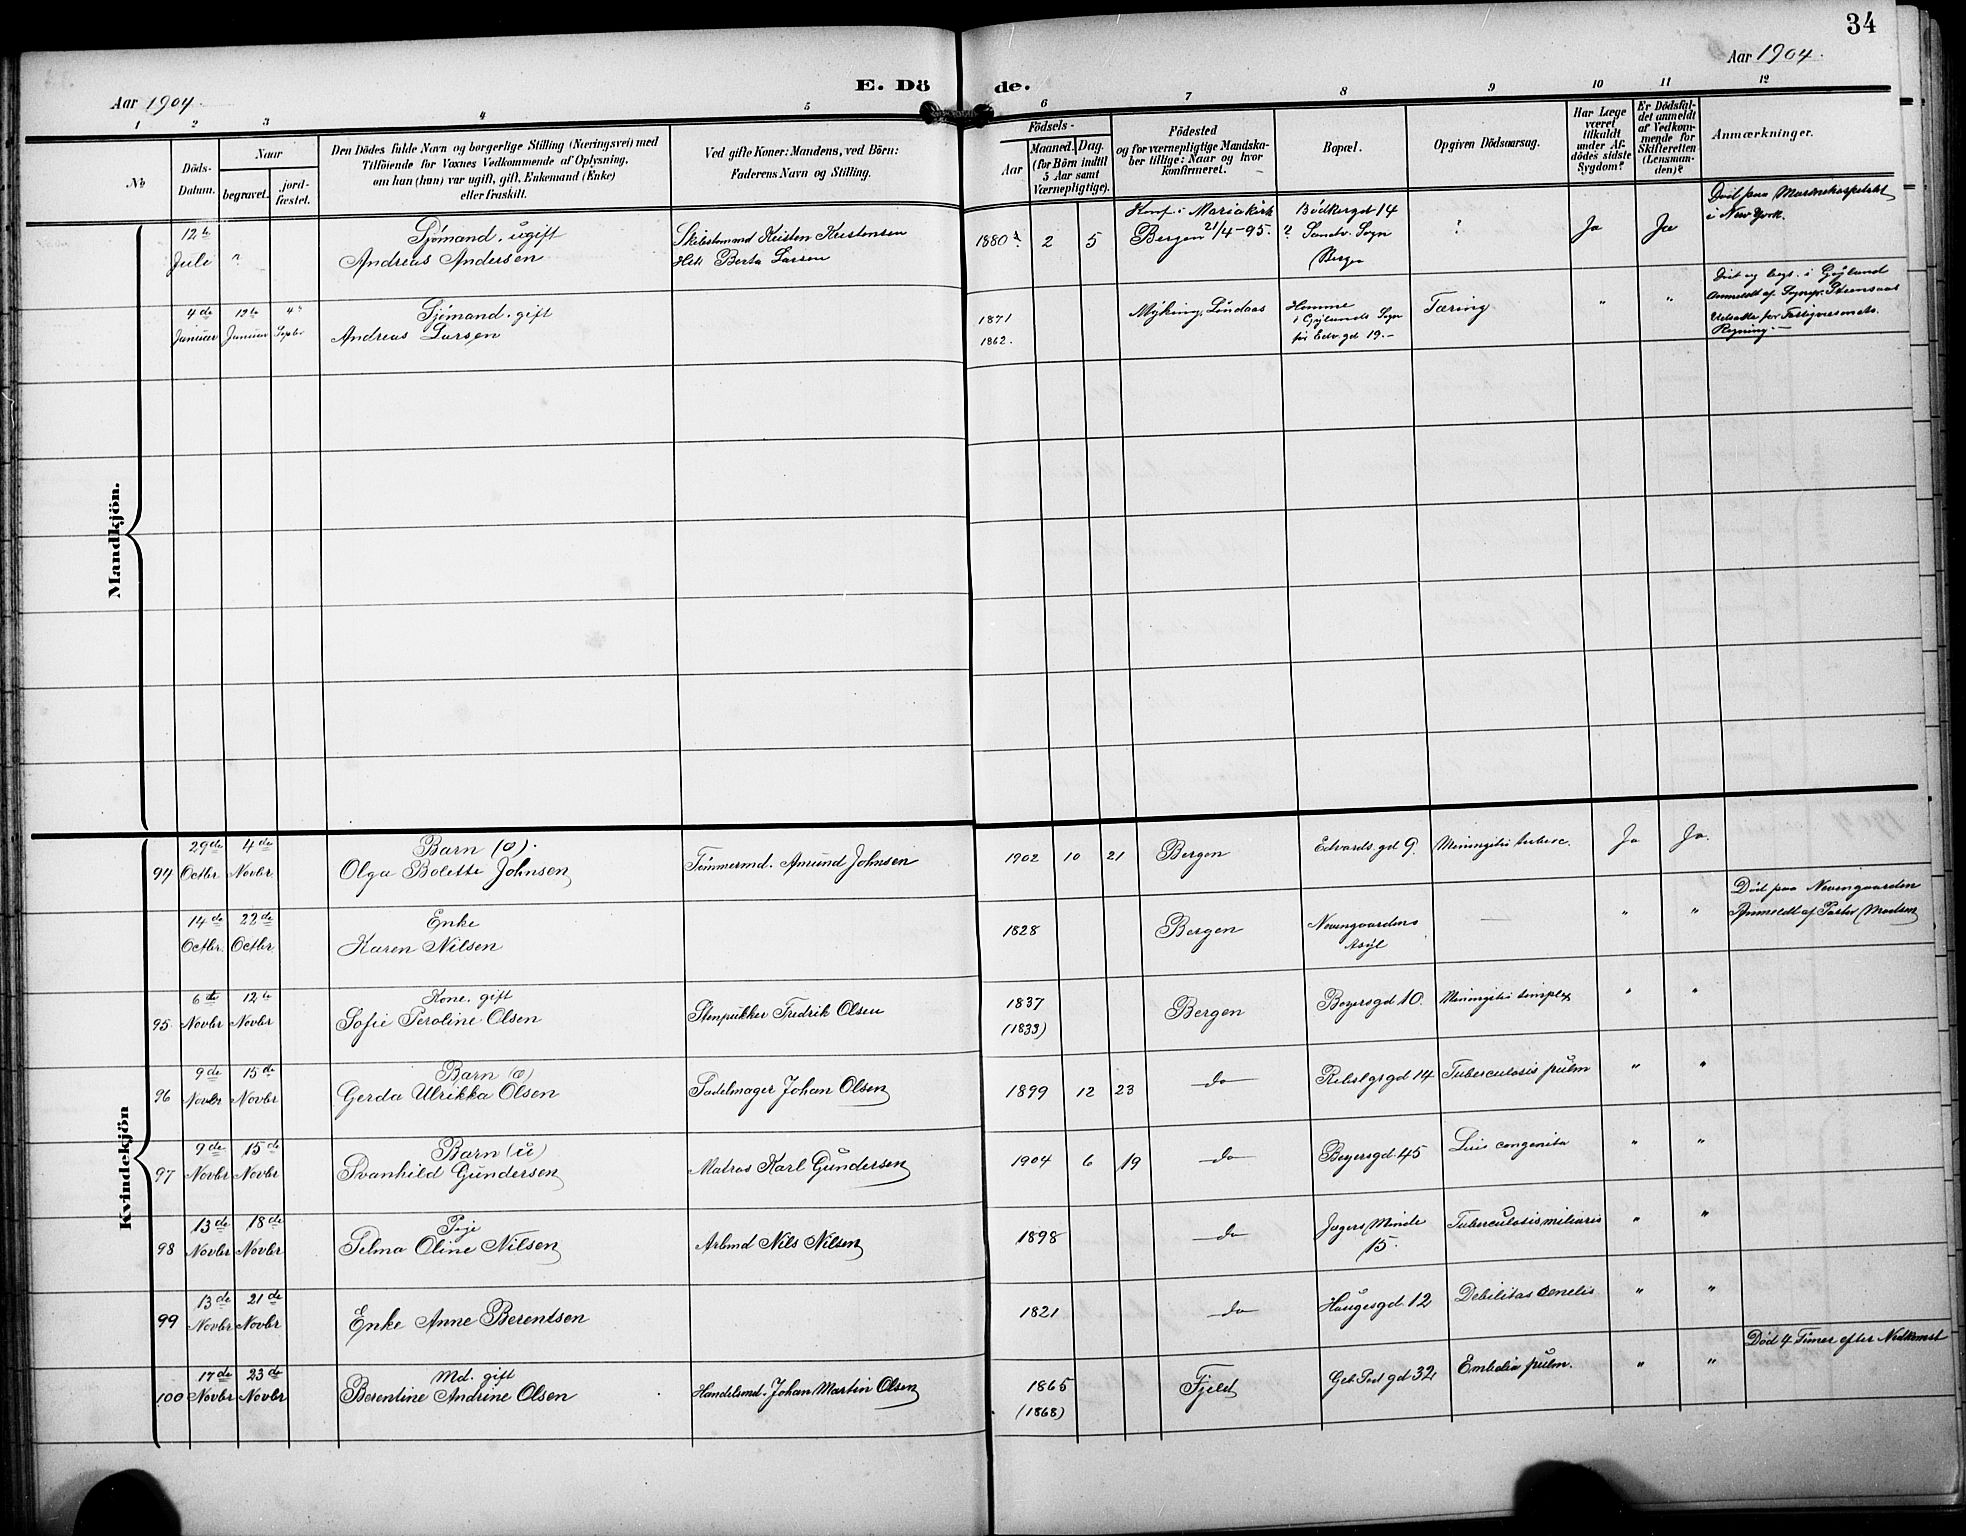 34
Aar 1904.
Aar 1904.
E. Döde.
1 2 3 4 5 6 7 8 9 10 11 12
No
Döds-Datum.
Naar
begravet.
jord-fæstet.
Den Dödes fulde Navn og borgerlige Stilling (Næringsvei) med
Tilföiende for Voxnes Vedkommende af Oplysning,
om han (hun) var ugift, gift, Enkemand (Enke)
eller fraskilt.
Ved gifte Koner: Mandens, ved Börn:
Faderens Navn og Stilling.
Födsels-
Aar
Maaned. Dag.
(for Börn indtil
5 Aar samt
Værnepligtige).
Födested
og for værnepligtige Mandska-
ber tillige: Naar og hvor
konfirmeret.
Bopæl.
Opgiven Dödsaarsag.
Har Læge
været
tilkaldt
under Af-
dödes sidste
Sygdom?
Er Dödsfal-
det anmeldt
af Vedkom-
mende for
Skifteretten
(Lensman-
den)?
Anmærkninger.
Mandkjön.
12te Juli " Sjömand. ugift
Andreas Andersen
Kristen Kristensen
Berta Larsen
1880 2 5
Konf. i Mariakirk
Bergen 21/4-95.
Bödkergd 14
? Sandv. Sogn
Bergen
Ja Ja
Död paa
i New York.
4de Januar 12te Januar
Sjömand. gift
Andreas Larsen
1871
1862.
Myking, Lindaas
Homme
i Gyland Sogn
för Edv. gd 19.-
Tæring
" "
Död og begr. i Gyland
Anmeldt af Sognepr.
Regning.-
Kvindekjön
94 29de Octbr 4de Novbr
Barn (o).
Olga Bolette Johnsen
Tömmermd. Amund Johnsen
1902 10 21 Bergen Edvards gd 9. Meningitis tuberc. Ja Ja.
14de Octbr. 22de Octbr.
Enke
Karen Nilsen
1828 Bergen
Nevengaardens
Asyl
— " "
Död paa Nevengaarden
Anmeldt af Pastor Madsen
95 6te Novbr 12te Novbr
Kone. gift
Sofie Peroline Olsen
Stenpukker Fredrik Olsen
1837
(1833)
Bergen Beyersgd 10. Meningitis simplex " "
96 9de Novbr 15de Novbr
Barn (o)
Gerda Ulrikka Olsen
Sadelmager Johan Olsen
1899 12 23 do Rebslgrgd 14 Tuberculosis pulm " "
97 9de Novbr 15de Novbr
Barn (u)
Svanhild Gundersen
Matros Karl Gundersen
1904 6 19 do Beyersgd 45 Lues congenita " "
98 13de Novbr 18de Novbr
Pige
Selma Oline Nilsen
Arbmd Nils Nilsen
1898 do
Jægers Minde
15.
Tuberculosis miliaris " "
99 13de Novbr 21de Novbr
Enke Anne Berentsen
1821 do Haugesgd 12 Debilitas senilis " "
100 17de Novbr 23de Novbr
Md. gift
Berentine Andrine Olsen
Handelsmd. Johan Martin Olsen
1865
(1868)
Fjeld gd 32 Embolia pulm. " "
Död 4 Timer efter Nedkomst